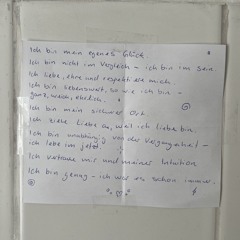 Ich bin mein eigenes Glück.
Ich bin nicht im Vergleich – ich bin im Sein.
Ich liebe, ehre und respektiere mich.
Ich bin liebenswert, so wie ich bin –
ganz, weich, ehrlich.
Ich bin mein sicherer Ort.
Ich ziehe Liebe an, weil ich Liebe bin.
Ich bin unabhängig von der Vergangenheit –
ich lebe im Jetzt.
Ich vertraue mir und meiner Intuition.
Ich bin genug – ich war es schon immer.